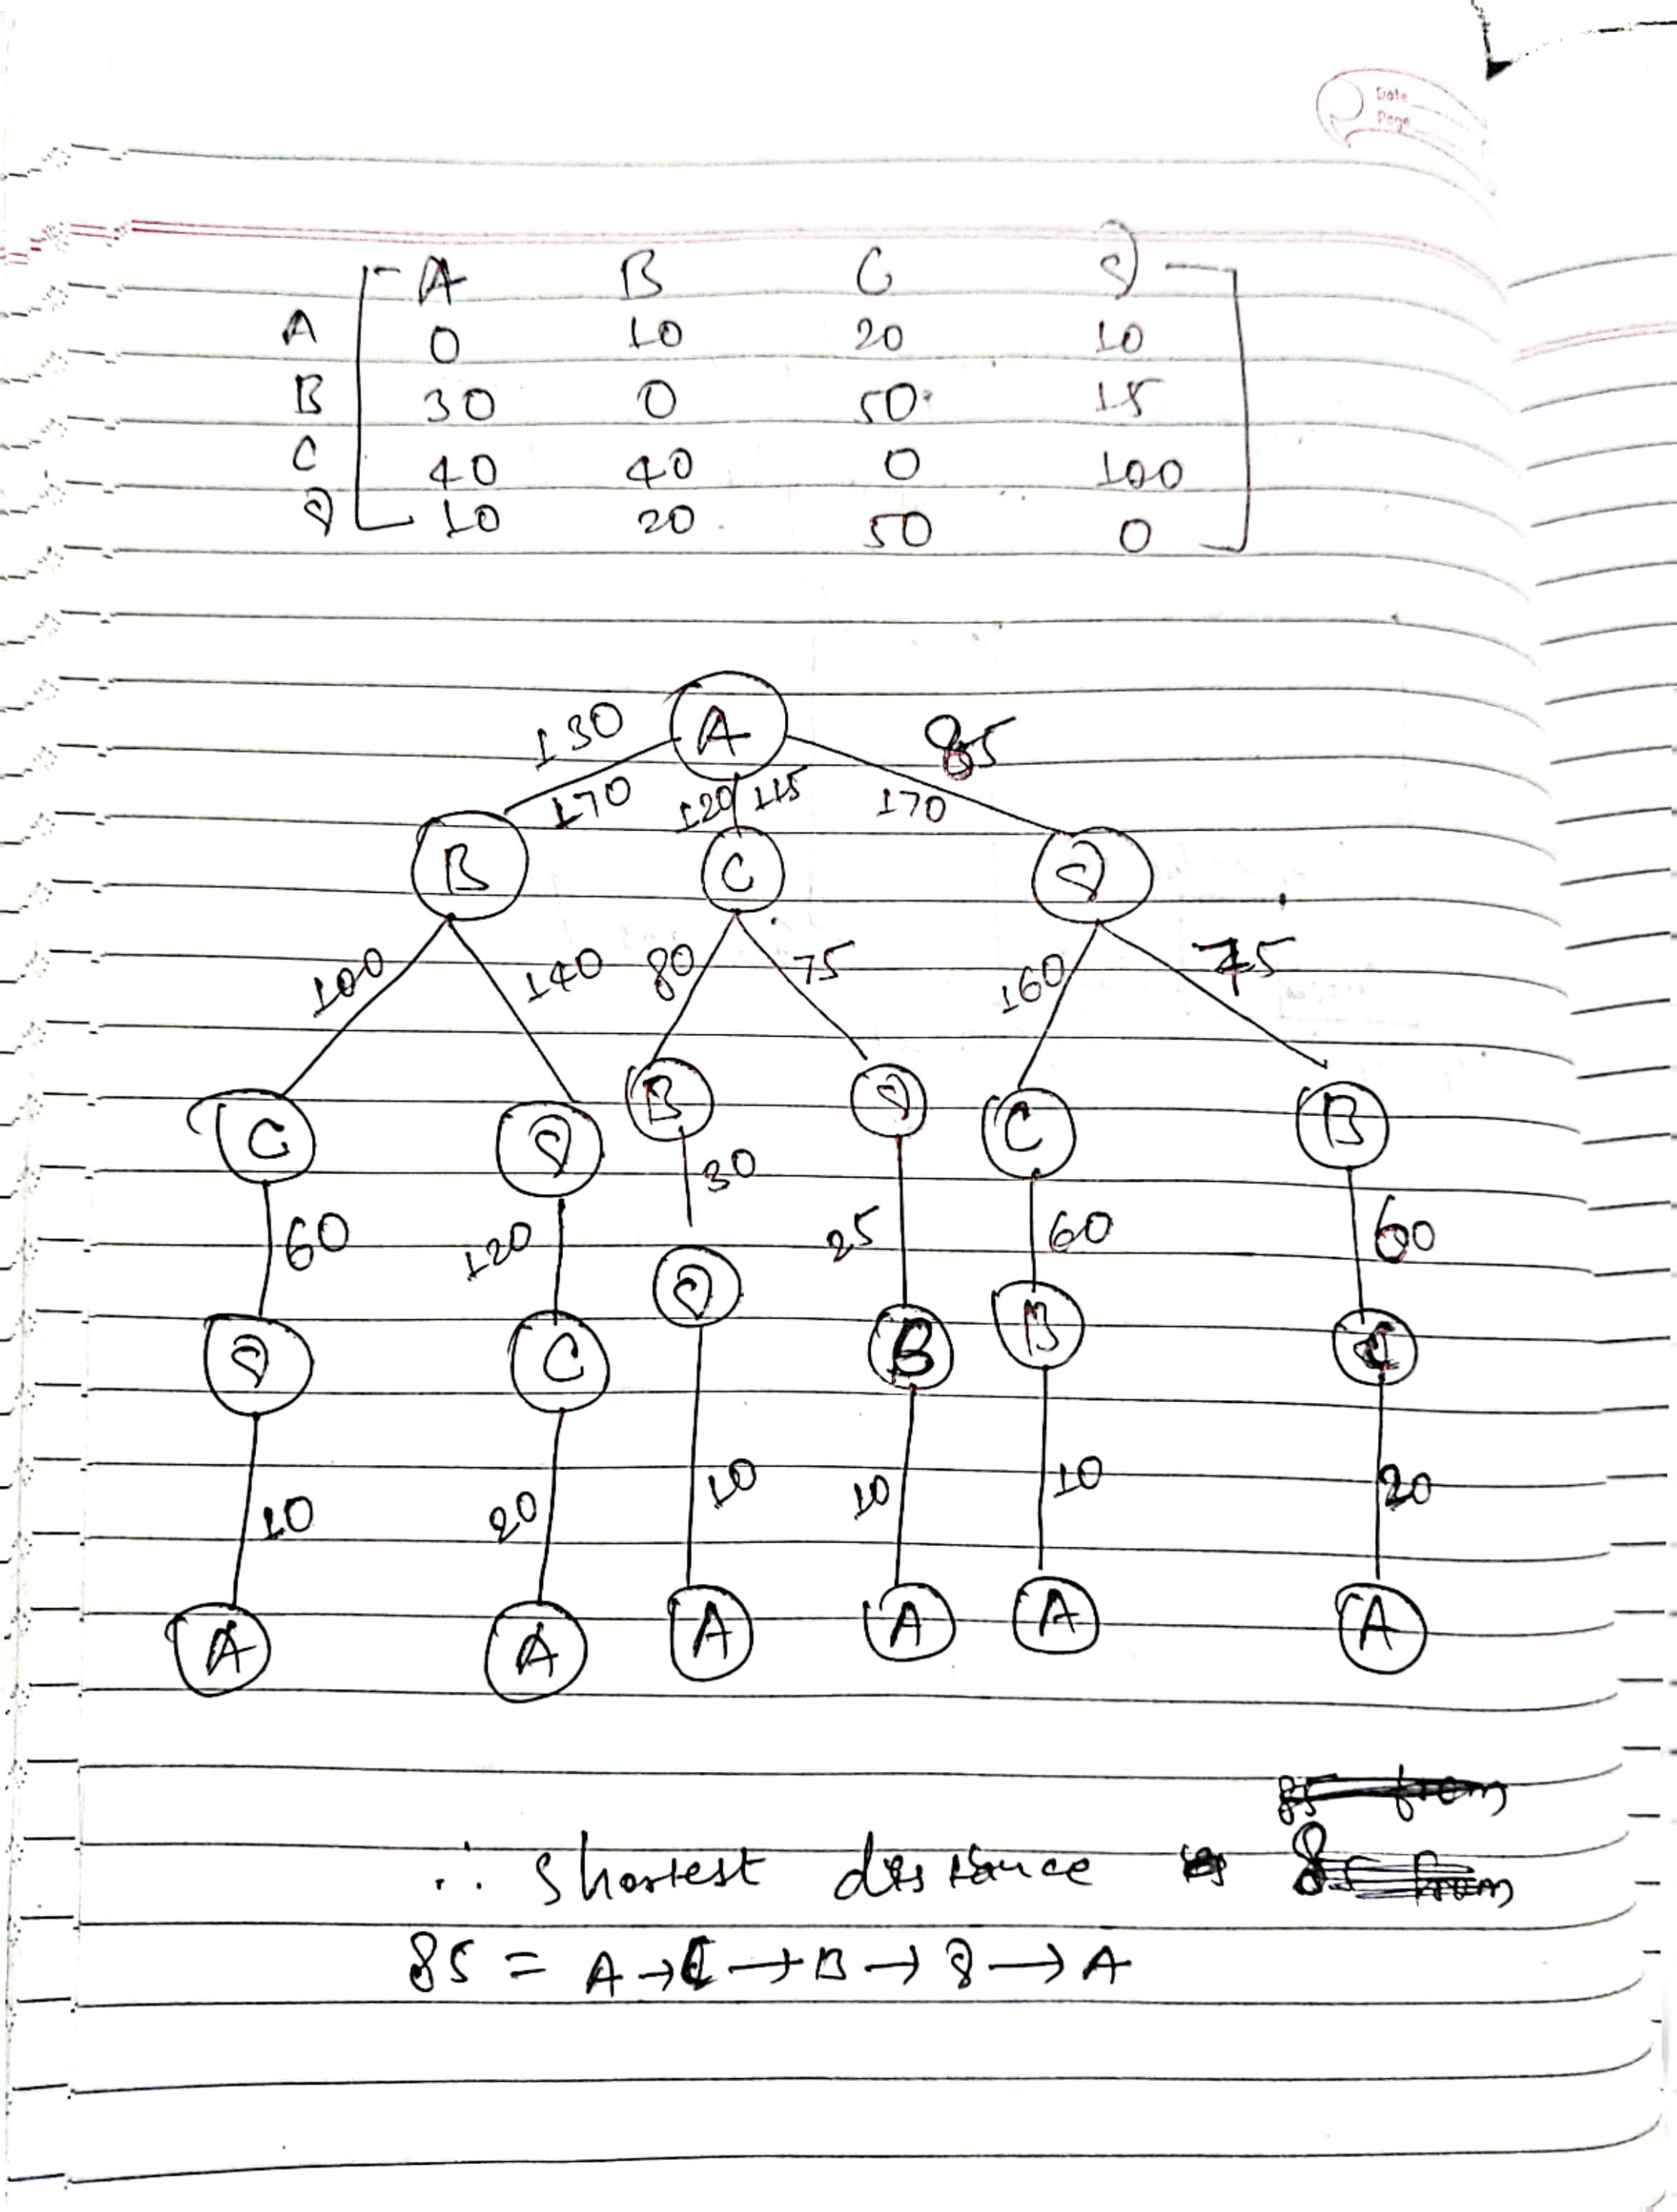 Date
Page
A B C D
A 0 10 20 10
B 30 0 50 15
C 40 40 0 100
D 10 20 50 0
130 A 85
170 120 115 170
B C D
100 140 80 75 160 75
C D B D C B
60 120 30 25 60 60
D C D B B C
10 20 10 10 10 20
A A A A A A
85 from
∴ Shortest distance is 85 from
85 = A → C → B → D → A